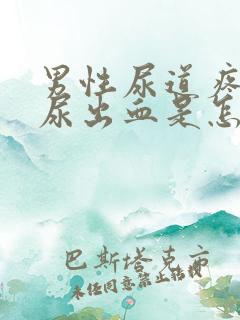 男性尿道疼
尿出血是怎
巴斯塔克亦
未经同意禁止转载